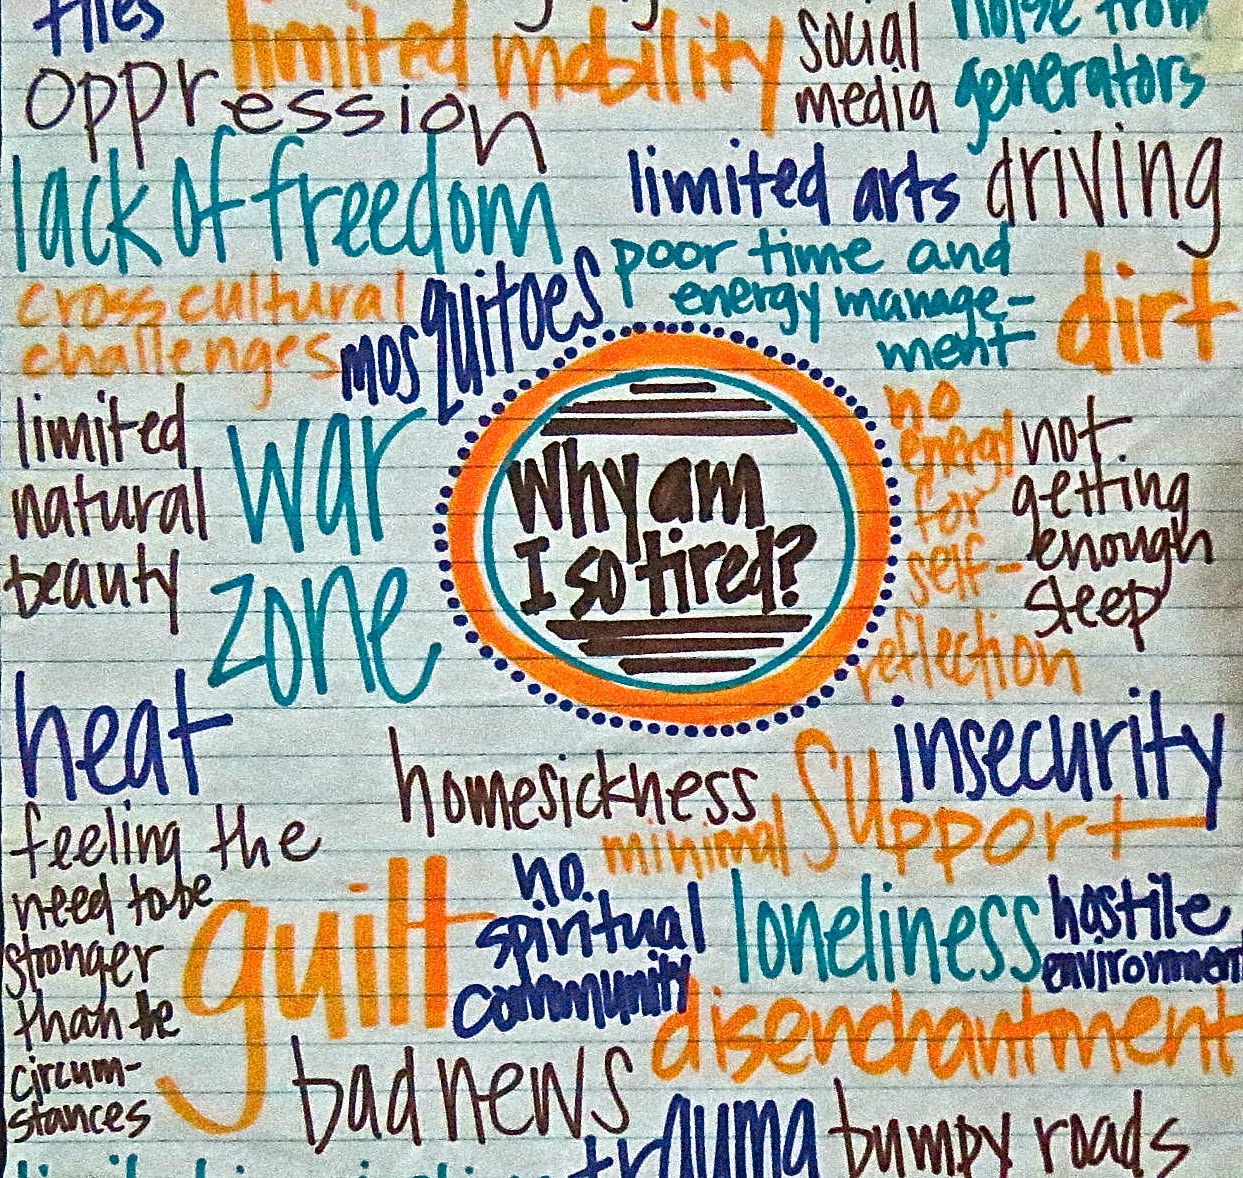 flies
limited mobility
social
media
noise from
generators
oppression
lack of freedom
limited arts
driving
cross cultural
challenges
mosquitoes
poor time and
energy manage-
ment
dirt
limited
natural
beauty
war
zone
Why am
I so tired?
no
energy
for
self-
reflection
not
getting
enough
sleep
heat
homesickness
insecurity
minimal support
feeling the
need to be
stronger
than the
circum-
stances
guilt
no
spiritual
community
loneliness
hostile
environment
disenchantment
bad news
trauma
bumpy roads